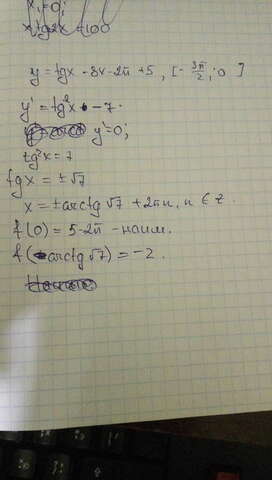 x₁=0;
y = tgx - 8x - 2π + 5, [-3π/2; 0]
y' = tg²x - 7.
y'=0;
tg²x = 7
tgx = ±√7
x = ±arctg√7 + 2πn, n ∈ z.
f(0) = 5-2π - наим.
f(-arctg√7) = -2.